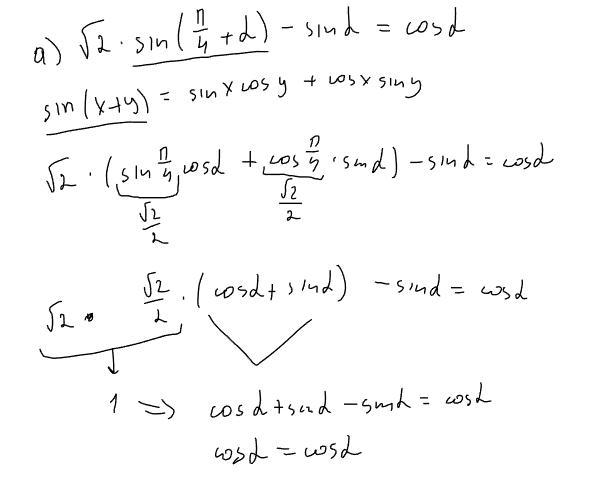 a) √2 · sin(π/4 + α) - sin α = cos α
sin(x+y) = sin x cos y + cos x sin y
√2 · (sin π/4 cos α + cos π/4 · sin α) - sin α = cos α
√2/2 √2/2
√2 · √2/2 · (cos α + sin α) - sin α = cos α
1 => cos α + sin α - sin α = cos α
cos α = cos α